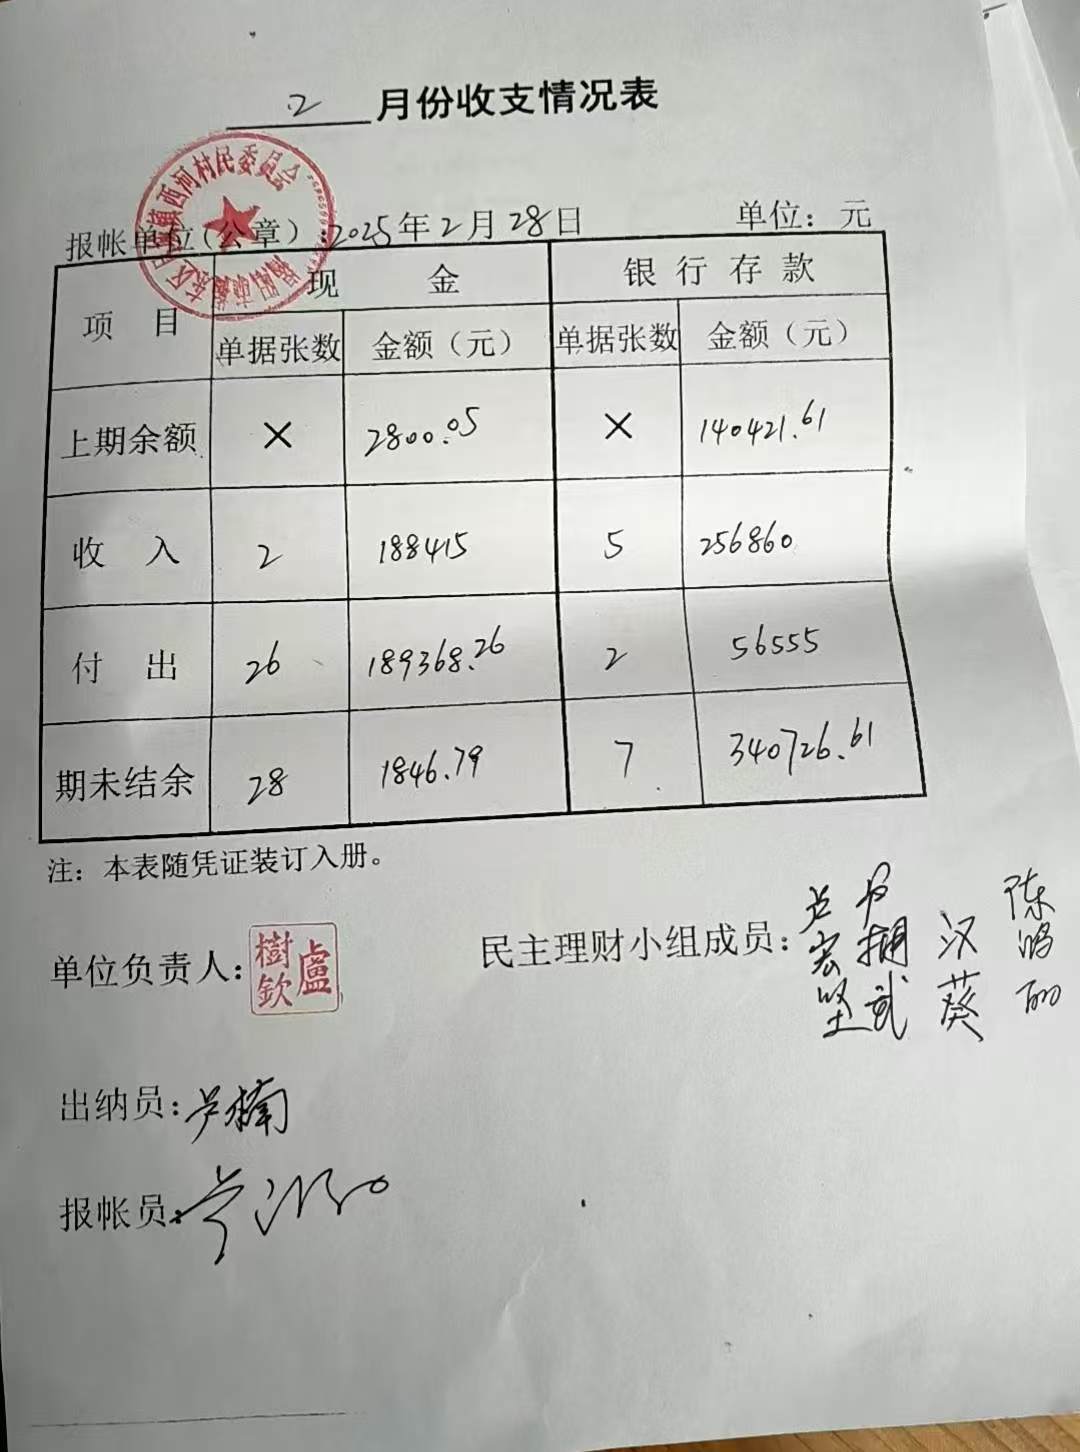 2 月份收支情况表
西河村民委员会
报帐单位(公章):2025年2月28日 单位:元
项 目 现 金 银行存款
单据张数 金额(元) 单据张数 金额(元)
上期余额 × 2800.05 × 140421.61
收 入 2 188415 5 256860
付 出 26 189368.26 2 56555
期未结余 28 1846.79 7 340726.61
注:本表随凭证装订入册。
单位负责人: 盧樹欽
民主理财小组成员: 卢宏坚 汉葵 陈鸿
出纳员:卢楠
报帐员: